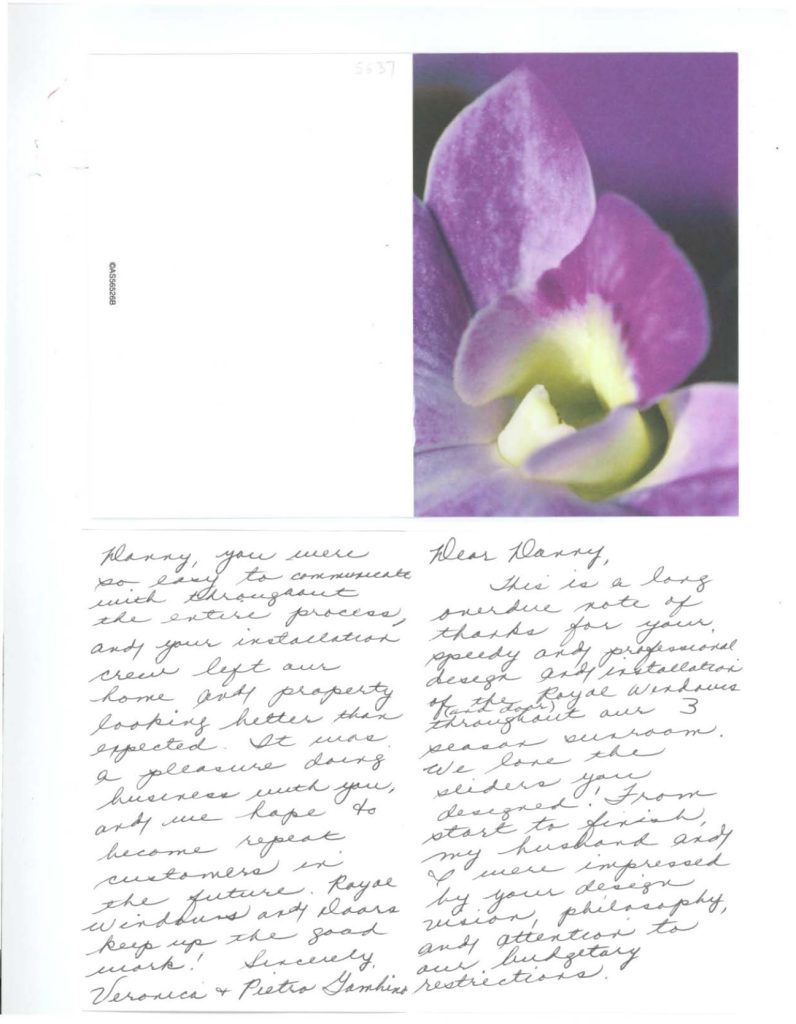 5537
©AS56526B
Dear Danny,
This is a long
overdue note of
thanks for your
speedy and professional
design and installation
of the Royal Windows
(and door)
throughout our 3
season sunroom.
We love the
sliders you
designed! From
start to finish,
my husband and
I were impressed
by your design
vision, philosophy,
and attention to
our budgetary
restrictions.
Danny, you were
so easy to communicate
with throughout
the entire process,
and your installation
crew left our
home and property
looking better than
expected. It was
a pleasure doing
business with you,
and we hope to
become repeat
customers in
the future. Royal
Windows and Doors
keep up the good
work! Sincerely,
Veronica + Pietro Gambino